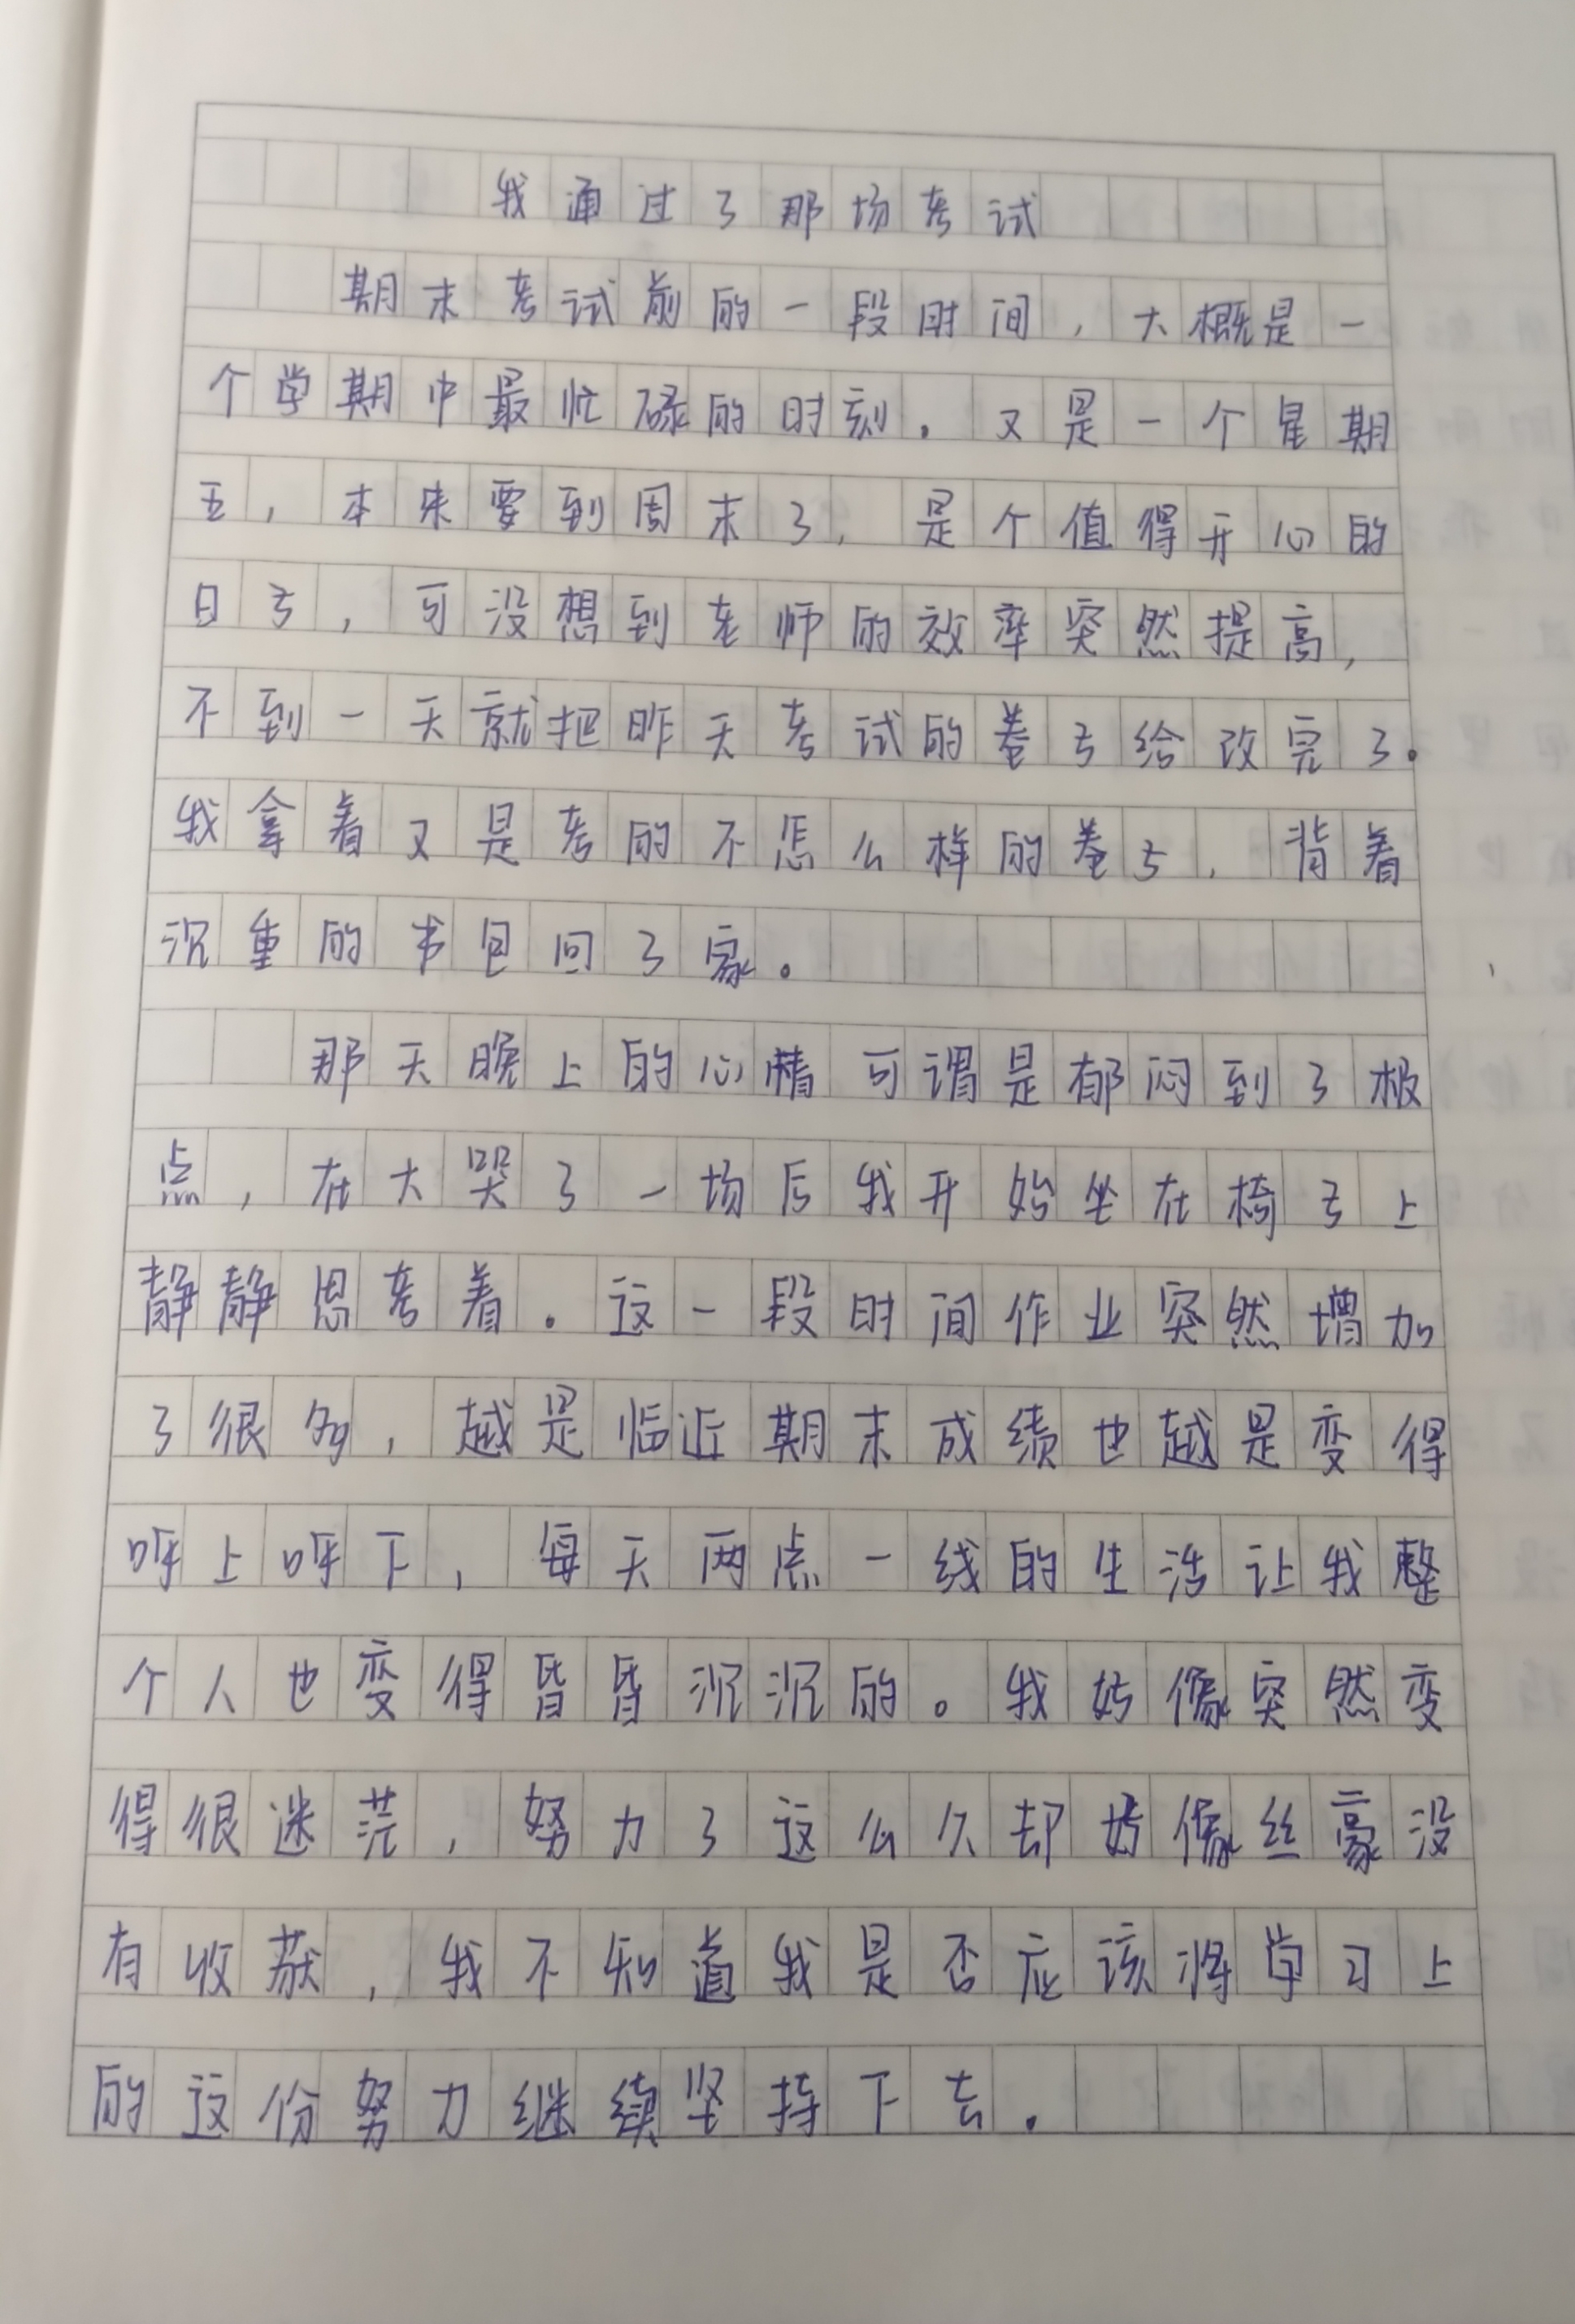 我通过了那场考试
期末考试前的一段时间，大概是一
个学期中最忙碌的时刻。又是一个星期
五，本来要到周末了，是个值得开心的
日子，可没想到老师的效率突然提高，
不到一天就把昨天考试的卷子给改完了。
我拿着又是考的不怎么样的卷子，背着
沉重的书包回了家。
那天晚上的心情可谓是郁闷到了极
点，在大哭了一场后我开始坐在椅子上
静静思考着。这一段时间作业突然增加
了很多，越是临近期末成绩也越是变得
忽上忽下，每天两点一线的生活让我整
个人也变得昏昏沉沉的。我好像突然变
得很迷茫，努力了这么久却好像丝毫没
有收获，我不知道我是否应该将学习上
的这份努力继续坚持下去。